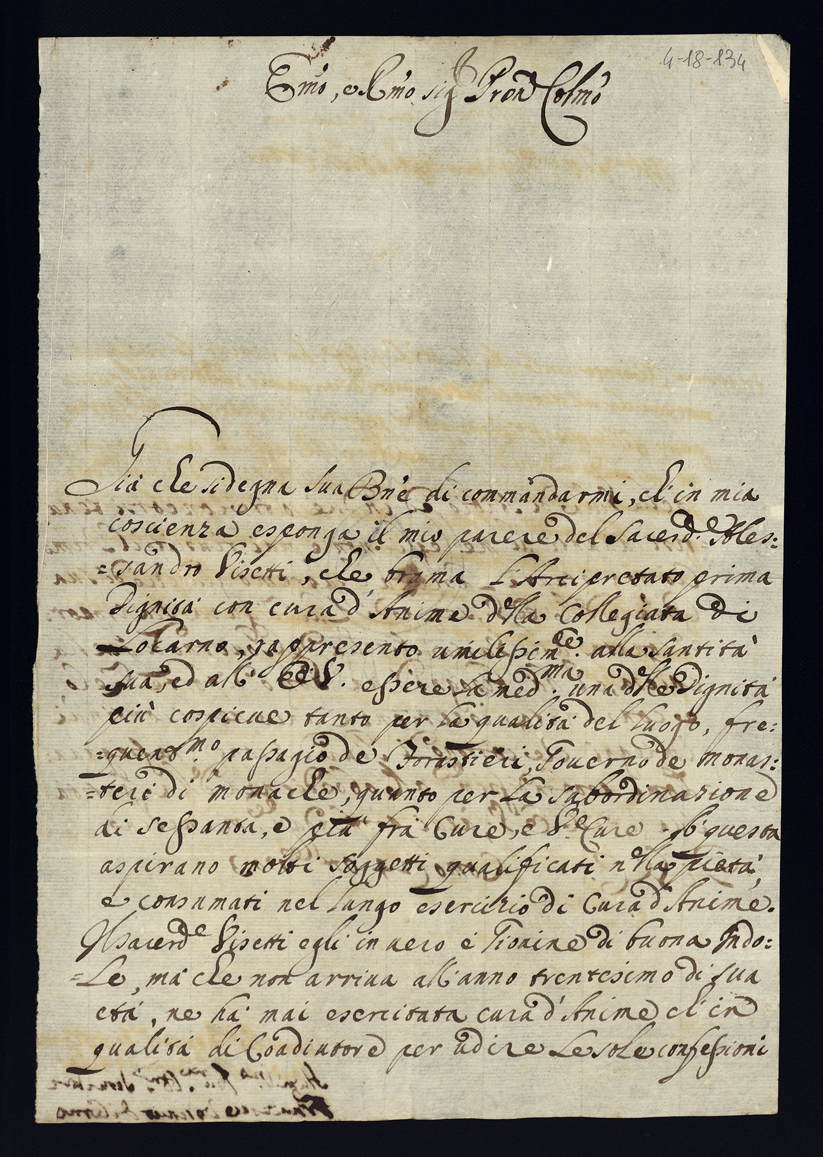 4-18-134
Emo, e Rmo Sigr Pron Colmo
Già che si degna Sua Bne di commandarmi, ch'in mia
coscienza esponga il mio parere del Sacerde Ales:
=sandro Visetti, che brama l'Arcipretato prima
Dignità con cura d'Anime della Collegiata di
Locarno, rappresento umilissimte alla Santità
Sua, ed all' E.V. essere la medma una delle Dignità
più cospicue tanto per la qualità del luogo, fre:
=quentmo passagio de Forastieri, Governo de monas:
=teri di monache, quanto per la subordinazione
di sessanta, e più frà Cure, e Ve Cure. A questa
aspirano molti soggetti qualificati nella pietà,
e consumati nel lungo esercizio di Cura d'Anime.
Il Sacerde Visetti egli in vero è Giovine di buona Indo:
=le, mà che non arriva all'anno trentesimo di sua
età, ne hà mai esercitata cura d'Anime ch'in
qualità di Coadiutore per udire le sole confessioni